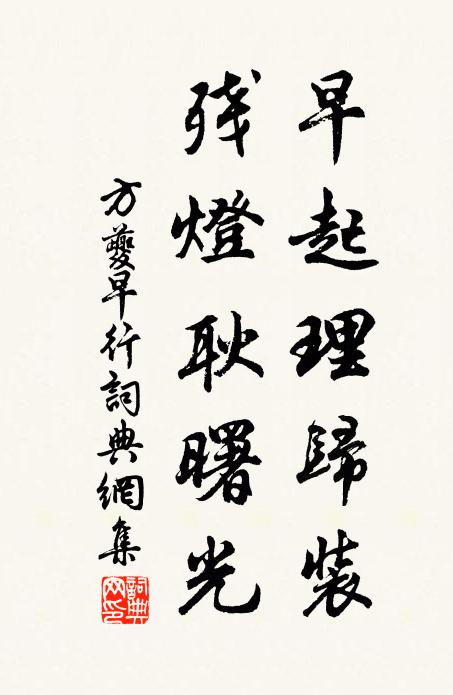 早起理歸裝
残燈耿曙光
方夔早行詞典網集
詞典网印